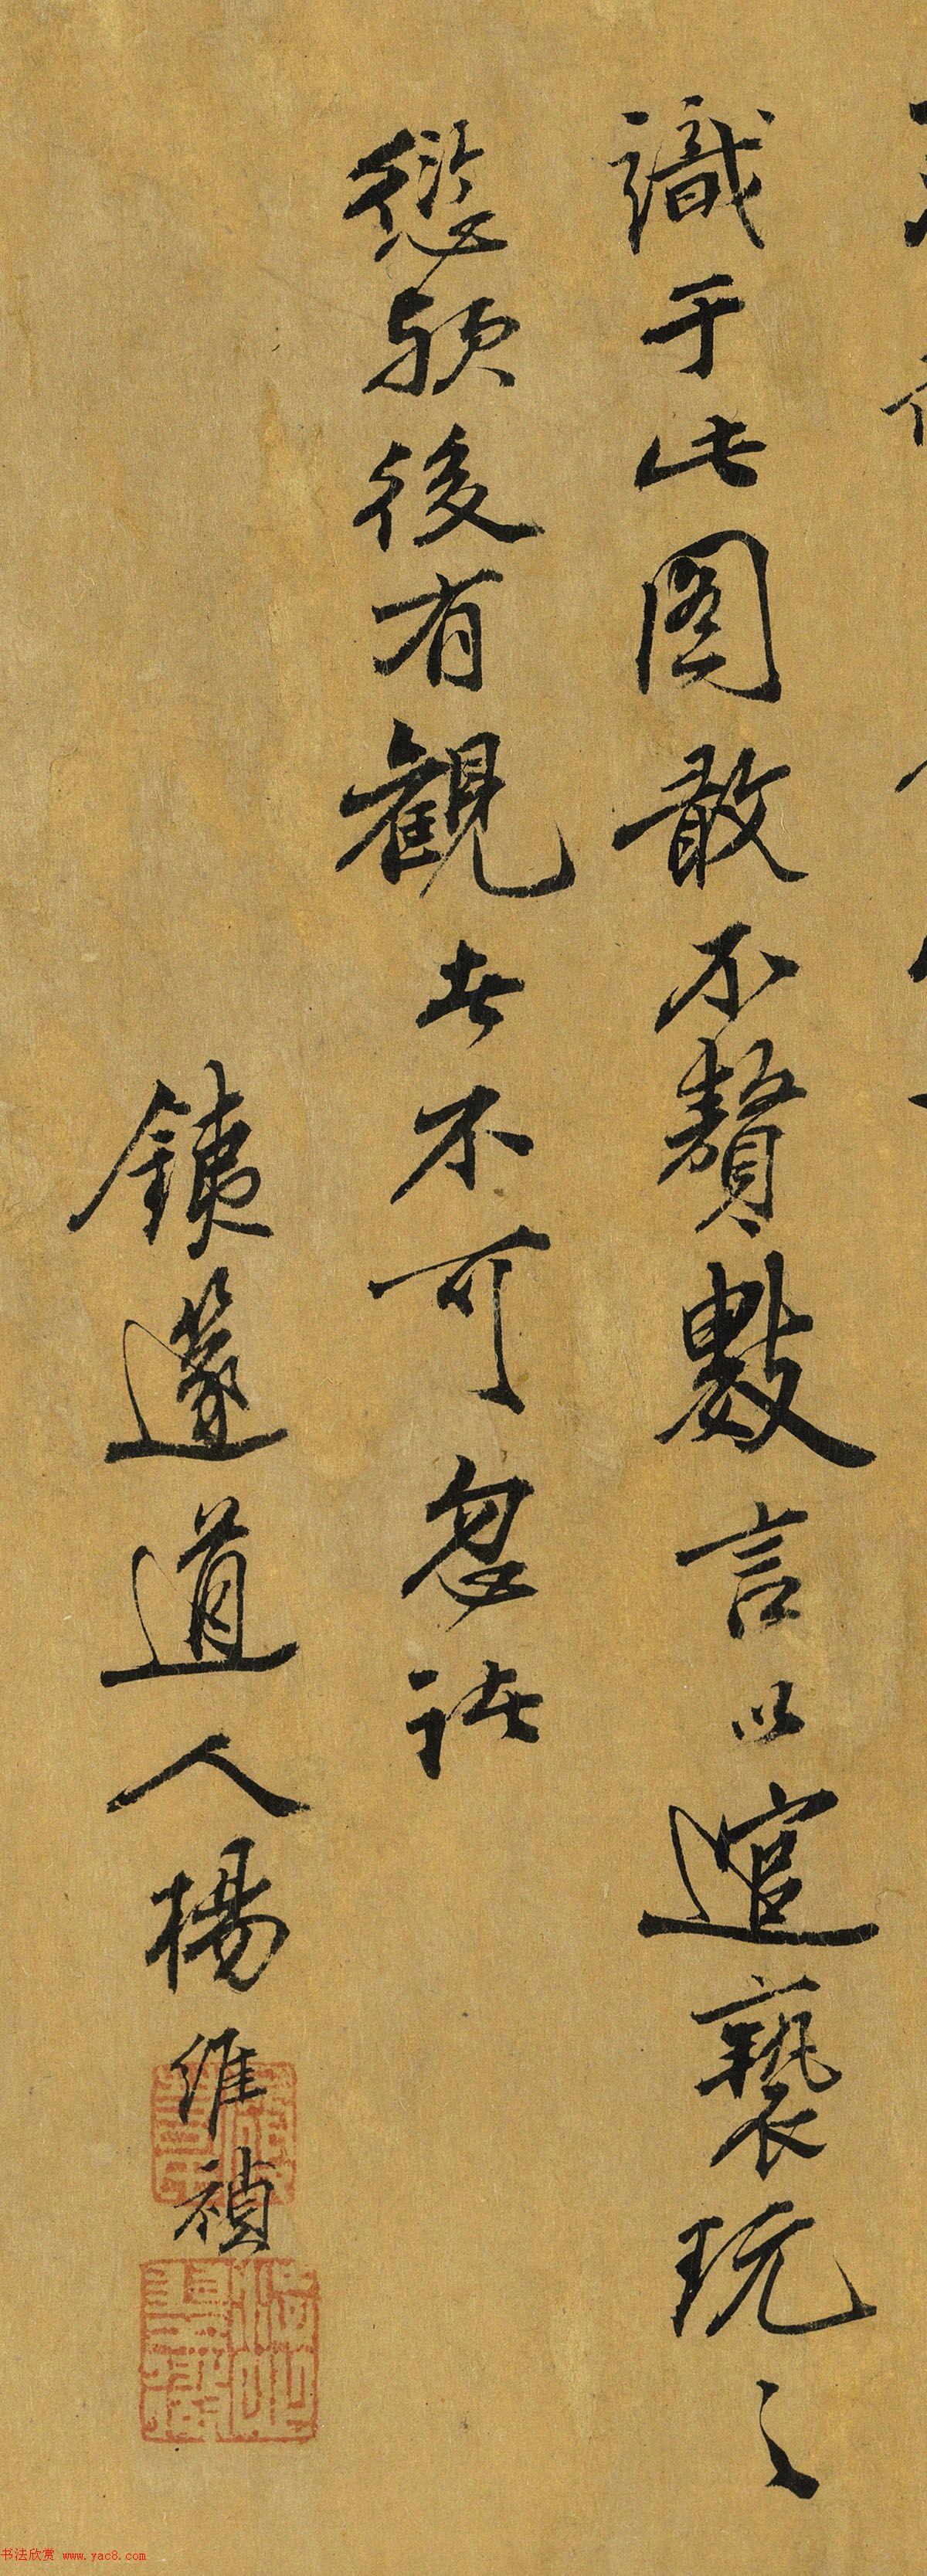 識于此圖敢不贅數言以逭褻玩之
愆願後有觀者不可忽諸
鐵篴道人楊維禎
书法欣赏 www.yac8.com